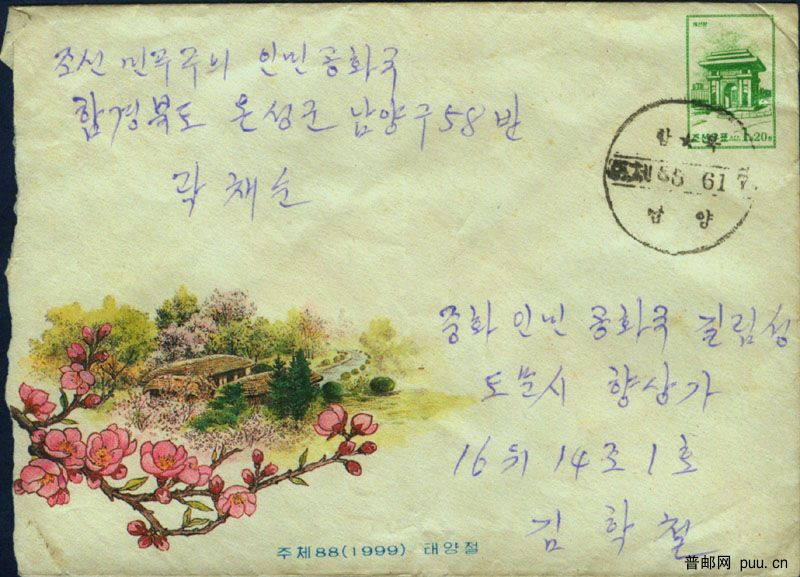 조선 민주주의 인민공화국
함경북도 온성군 남양구 58반
곽채순
개선문
조선우표 1.20원
함 북
주체88 6.17.
남 양
중화 인민 공화국 길림성
도문시 향상가
16위 14조 1호
김 학 철
주체88(1999) 태양절
普邮网 puu.cn